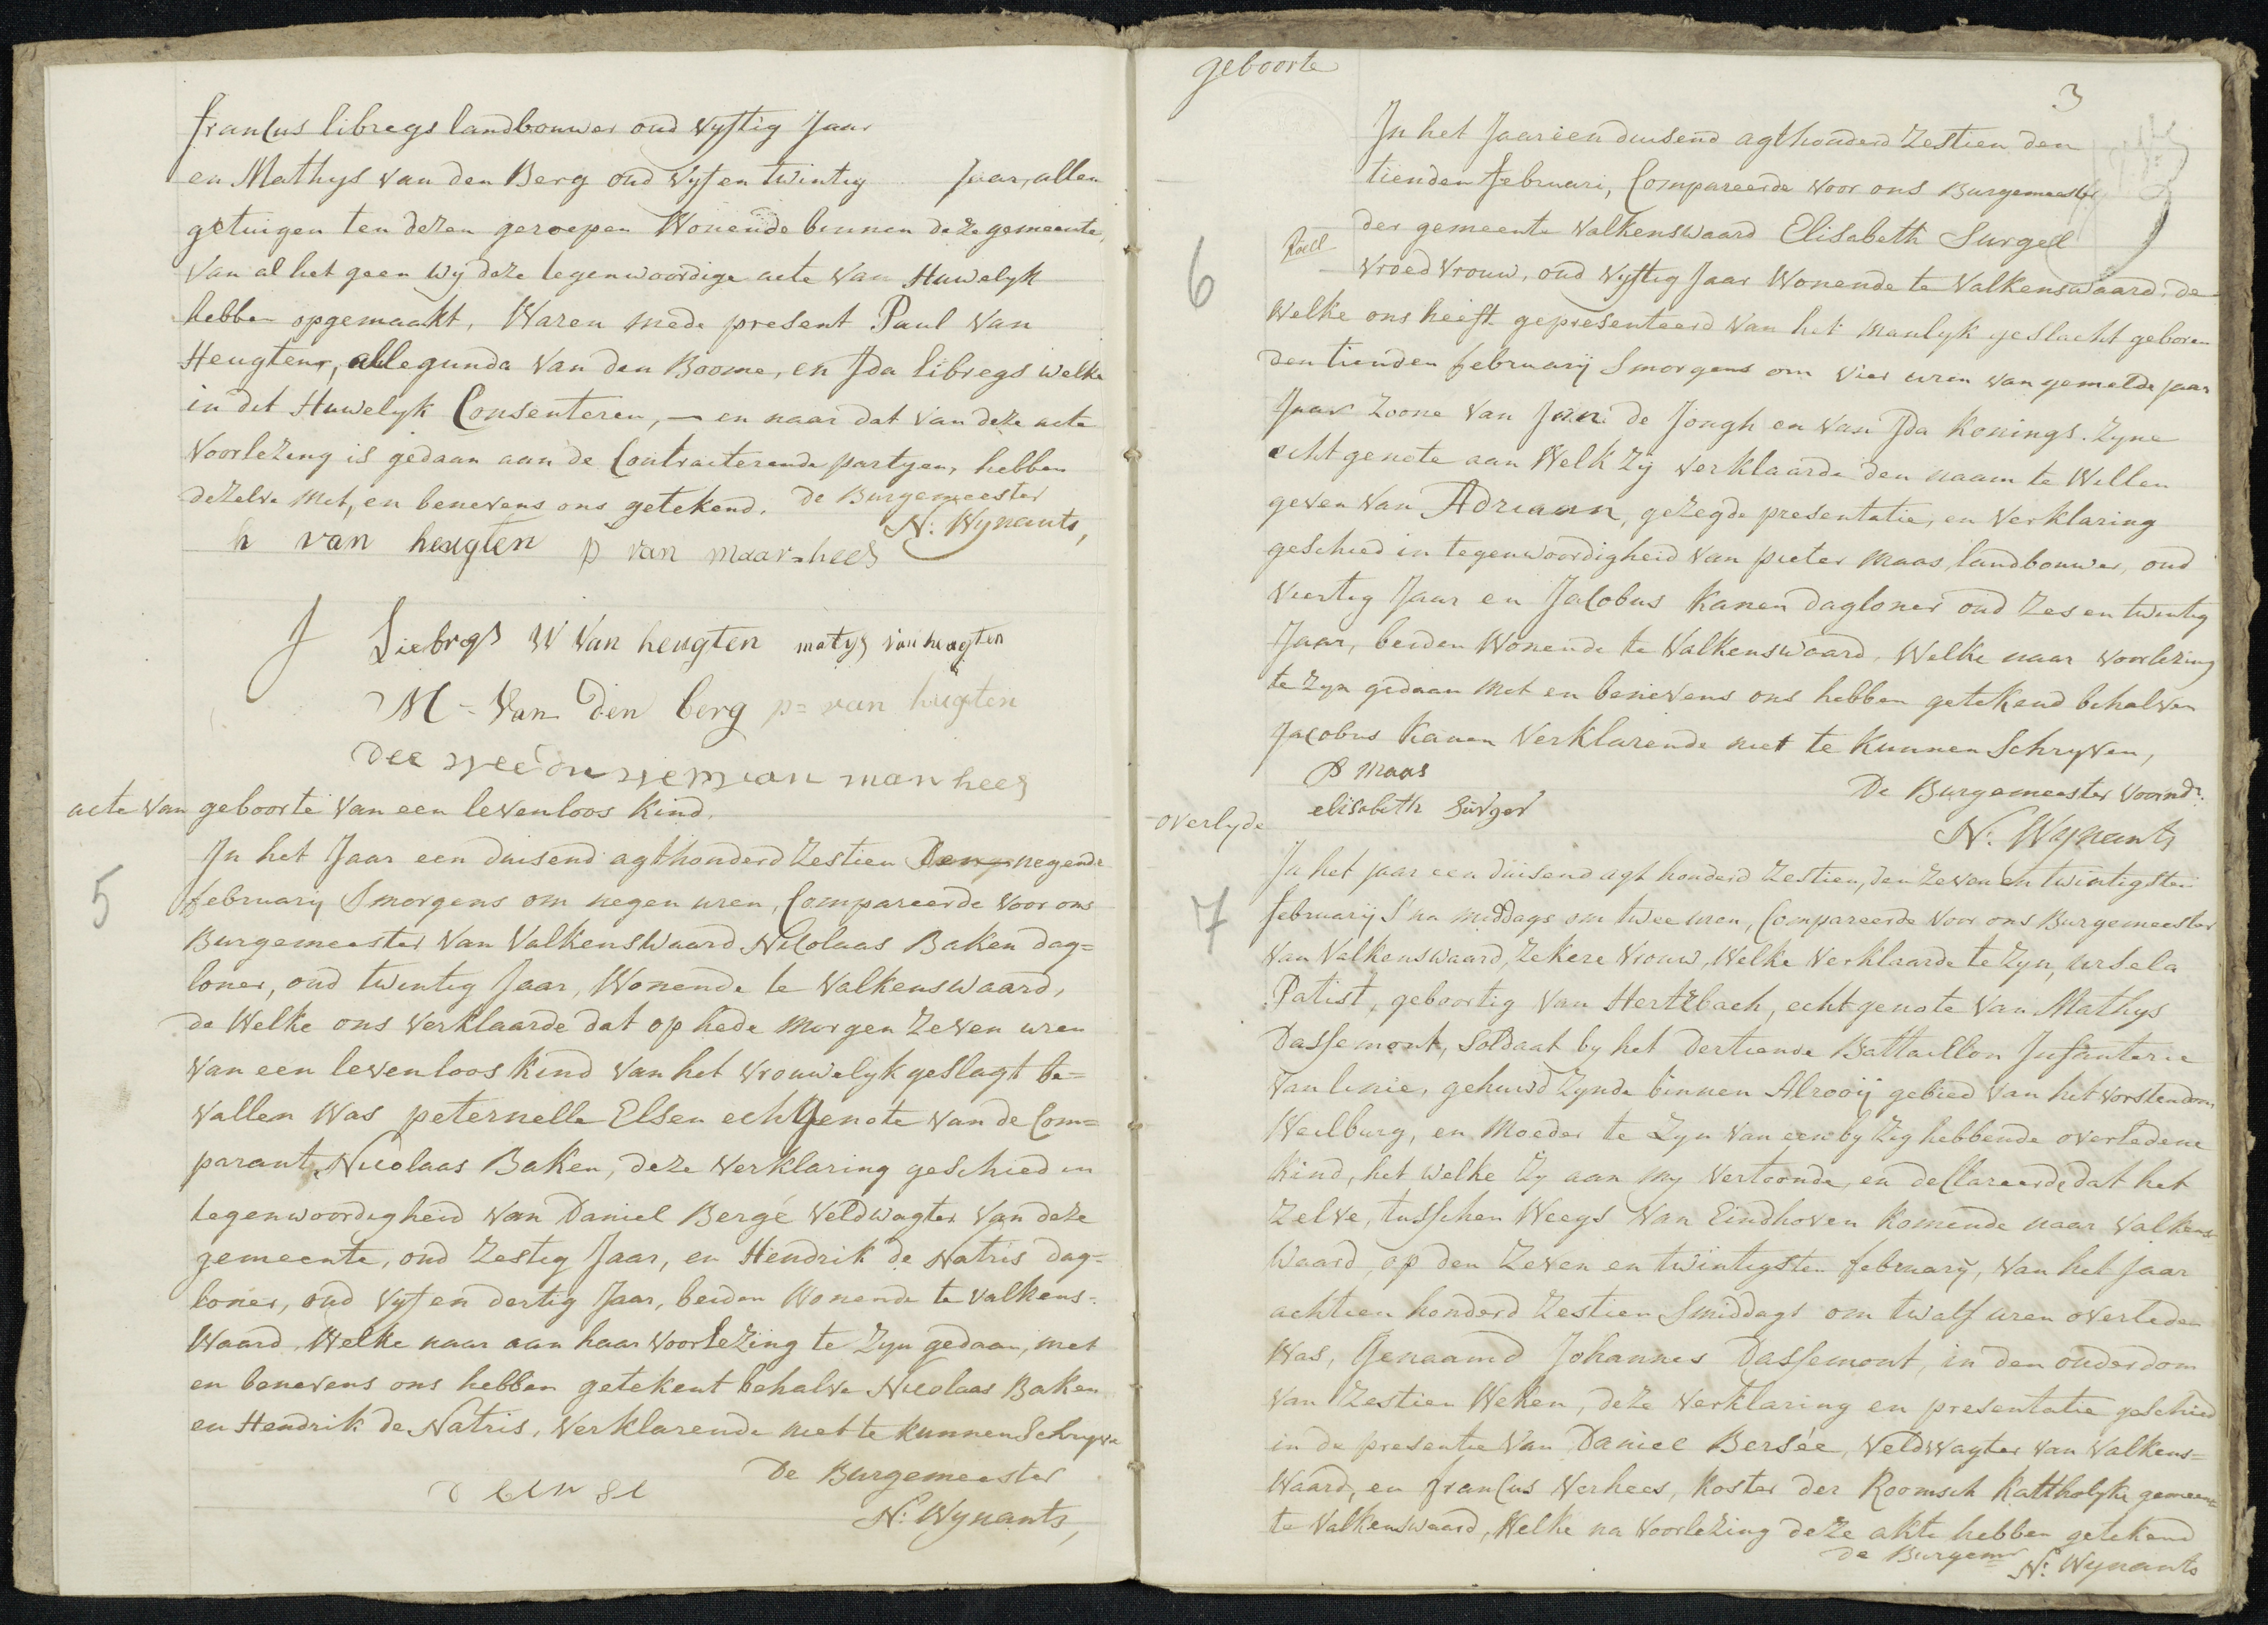 francus libregs landbouwer oud vyftig Jaar
en Mathys van den Berg oud vyf en twintig Jaar, allen
getuigen ten dezen geroepen Wonende binnen deze gemeente,
Van al het geen wy deze tegenwoordige acte van Huwelyk
hebben opgemaakt, Waren mede present Paul van
Heugten, allegunda Van den Boome, en Ida libregs welke
in dit Huwelyk Consenteren, — en naar dat van deze acte
Voorlezing is gedaan aan de Contracterende partyen, hebben
dezelve met, en benevens ons getekend. De Burgemeester
N: Wynants,
h van heugten p van maar=hees
J Liebregs W Van heugten matys van heugten
M = Van den berg p = van heugten
acte van geboorte van een levenloos Kind.
5
In het Jaar een duisend agthonderd Zestien Den negende
february Smorgens om negen uren, Compareerde voor ons
Burgemeester Van Valkenswaard Nicolaas Baken dag=
loner, oud twintig Jaar, Wonende te Valkenswaard,
de Welke ons verklaarde dat op hede morgen Zeven uren
van een levenloos Kind van het vrouwelyk geslagt be=
vallen Was peternelle Elsen echtgenote van de Com=
parant, Nicolaas Baken, deze verklaring geschied in
tegenwoordigheid van Daniel Bergé veldwagter van deze
gemeente, oud Zestig Jaar, en Hendrik de Natris dag=
loner, oud vyf en dertig Jaar, beiden Wonende te valkens=
Waard, Welke naar aan haar voorlezing te Zyn gedaan, met
en benevens ons hebben getekent behalve Nicolaas Baken
en Hendrik de Natris, verklarende niet te kunnen Schryve
De Burgemeester
N: Wynants,
geboorte
3
6
In het Jaar een duisend agthonderd Zestien den
tienden februari, Compareerde voor ons Burgemeester
der gemeente Valkenswaard Elisabeth Surgel
Vroedvrouw, oud vyftig Jaar Wonende te Valkenswaard, de
Welke ons heeft gepresenteerd van het manlyk geslacht geboren
den tienden februarij Smorgens om vier uren van gemelde jaar
Jaar Zoone van Jan de Jongh en van Ida Konings. Zyne
echtgenote aan Welk Zij verklaarde den naam te Willen
geven van Adriaan, gezegde presentatie, en verklaring
geschied in tegenwoordigheid van pieter Maas, landbouwer, oud
Viertig Jaar en Jacobus Kanen dagloner oud Zes en twintig
Jaar, beiden Wonende te Valkenswaard, Welke naar voorlezing
te Zyn gedaan met en benevens ons hebben getekend behalven
Jacobus Kanen Verklarende niet te Kunnen Schryven,
P Maas
De Burgemeester voornd.
elisabeth Surger
N: Wynants
overlyde
7
In het jaar een duisend agt honderd Zestien, den Zeven en twintigsten
februarij S'na middags om twee uren, Compareerde voor ons Burgemeester
Van Valkenswaard, Zekere vrouw, Welke verklaarde te Zyn, ursela
Patist, geboortig van Hertzbach, echtgenote van Mathys
Dassemont, Soldaat by het dertiende Battaillon Infanterie
van linie, gehuwd Zynde binnen Alrooij gebied van het vorstendom
Weilburg, en moeder te Zyn van een by Zig hebbende overledene
Kind, het welke Zy aan my vertoonde, en declareerde dat het
Zelve, tusschen Weegs van Eindhoven Komende naar Valkens
Waard, op den Zeven en twintigsten februarij, van het Jaar
achtien honderd Zestien Smiddags om twalf uren overleden
Was, Genaamd Johannes Dassemont, in den ouderdom
van Zestien Weken, deze verklaring en presentatie geschied
in de presentie van Daniel Bersée, veldwagter van Valkens=
Waard, en francus verhees, koster der Roomsch Kattholyke gemeente
te Valkenswaard, Welke na voorlezing deze akte hebben getekend
de Burgemr N: Wynants